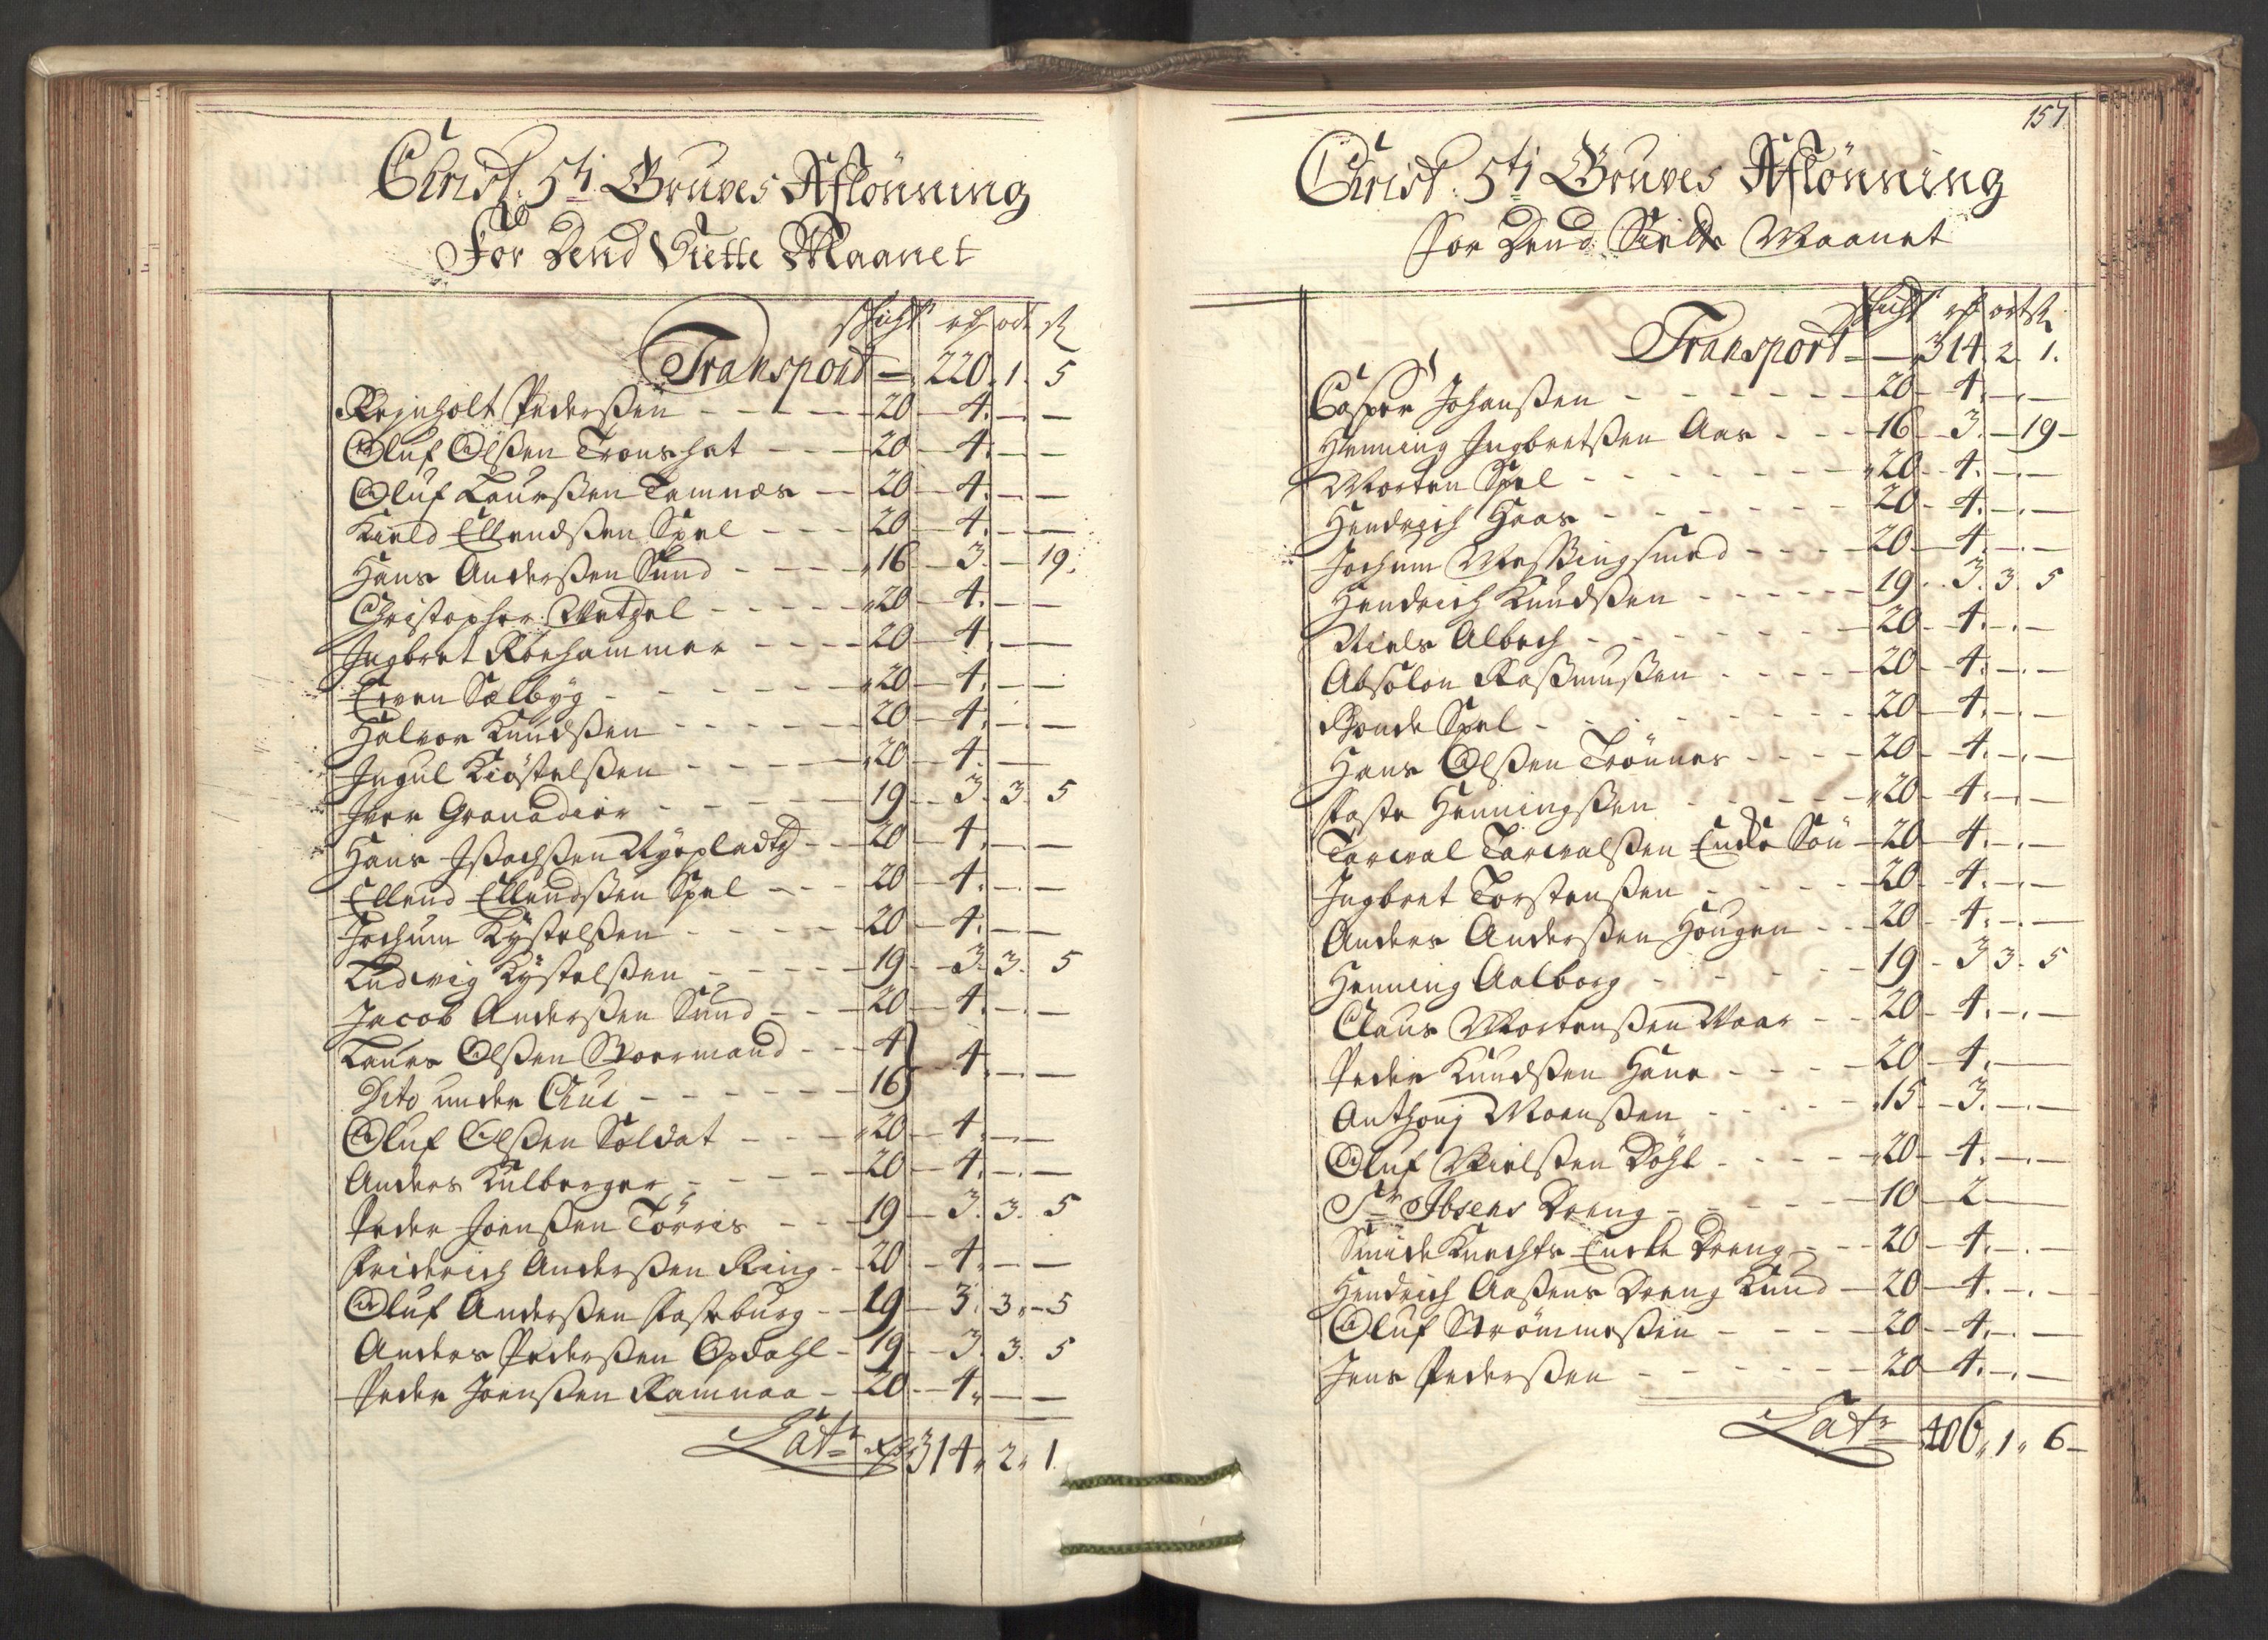 Christ: 5ti Gruves Aflønning
For Dend Siette Maanet
schicht rd ort s
Transport — 220. 1. 5
Rejnholt Pederßen - - - 20 — 4. — —
Oluf Olßen Tronshat - - - 20 — 4. — —
Oluf Laurßen Tamnæs - - 20 — 4. — —
Kield Ellendßen Spel - - - 20 — 4. — —
Hans Anderßen Sund - - - 16 — 3. — 19.
Christopher Wetzel - - - 20 — 4. — —
Ingbret Röehammer - - - 20 — 4. — —
Even Sælbÿg - - - 20 — 4. — —
Halvor Knudßen - - - 20 — 4. — —
Ingul Kiöstelßen - - - 20 — 4. — —
Iver Granadier - - - 19 - - 3. 3. 5
Hans Ißachßen - - 20 — 4. — —
Ellend Ellendßen Spel - - - 20 — 4. — —
Jochum Kÿstelßen - - - 20 — 4. — —
Ludvig Kÿstelßen - - - 19 - - 3. 3. 5
Jacob Anderßen Sund - - - 20 — 4. — —
Laurs Olßen Skoermand - - - 4
Dito under Cui - - - 16 } 4. — —
Oluf Olßen Soldat - - - 20 — 4. — —
Anders Kulberger - - - 20 — 4. — —
Peder Joenßen Törris - - - 19 — 3. 3. 5
Friderich Anderßen Ring - 20 — 4. — —
Oluf Anderßen Fosteburg - - 19 — 3. 3. - 5
Anders Pederßen Opdahl - 19 - - 3. 3. 5
Peder Joenßen Ramnaa - 20 - - 4. — —
Latr rd 314. 2. 1.
157.
Christ: 5ti Gruves Aflønning
for Dend Siette Maanet
schicht rd ort s
Transport — — 314. 2. 1.
Casper Johanßen - - - 20 - 4. — —
Henning Ingbretßen Aas - - - 16 - - 3. — 19 -
Morten Spel - - - 20 - - 4. — —
Hendrich Haas - - - 20 - 4. — —
Jochum Meßingsmed - - - 20 — 4. — —
Hendrich Knudßen - - - 19 - - 3. 3. 5
Niels Albech - - - 20 - 4. — —
Absolon Raßmußen - - - 20 - 4. — —
Bonde Spel - - - 20 - 4. — —
Hans Olßen Trönnes - - - 20 - 4. — —
Faste Henningßen - - - 20 - 4. — —
Tarval Tarvalßen Encke Sön - 20 - 4. — —
Ingbret Torstenßen - - - 20 - 4. — —
Anders Anderßen Hougen - - 20 - 4. — —
Henning Aalborg - - - 19 - 3 3. 5
Claus Mortenßen Waar - - 20 - 4. — —
Peder Knudßen Hane - - - 20 - 4. —
Anthonj Moenßen - - - 15 - - 3. — —
Oluf Nielßen Döhl - - - 20 - 4. — —
Sr Ibsens Dreng - - - 10 — 2 —
Smide Knechts Encke Dreng - - 20 - 4. — —
Hendrich Aaßens Dreng Knud - 20 - 4. — —
Oluf Strömmoßen - - - 20 - - 4. — —
Jens Pederßen - - - 20 - 4. — —
Latr 406. 1. 6 -